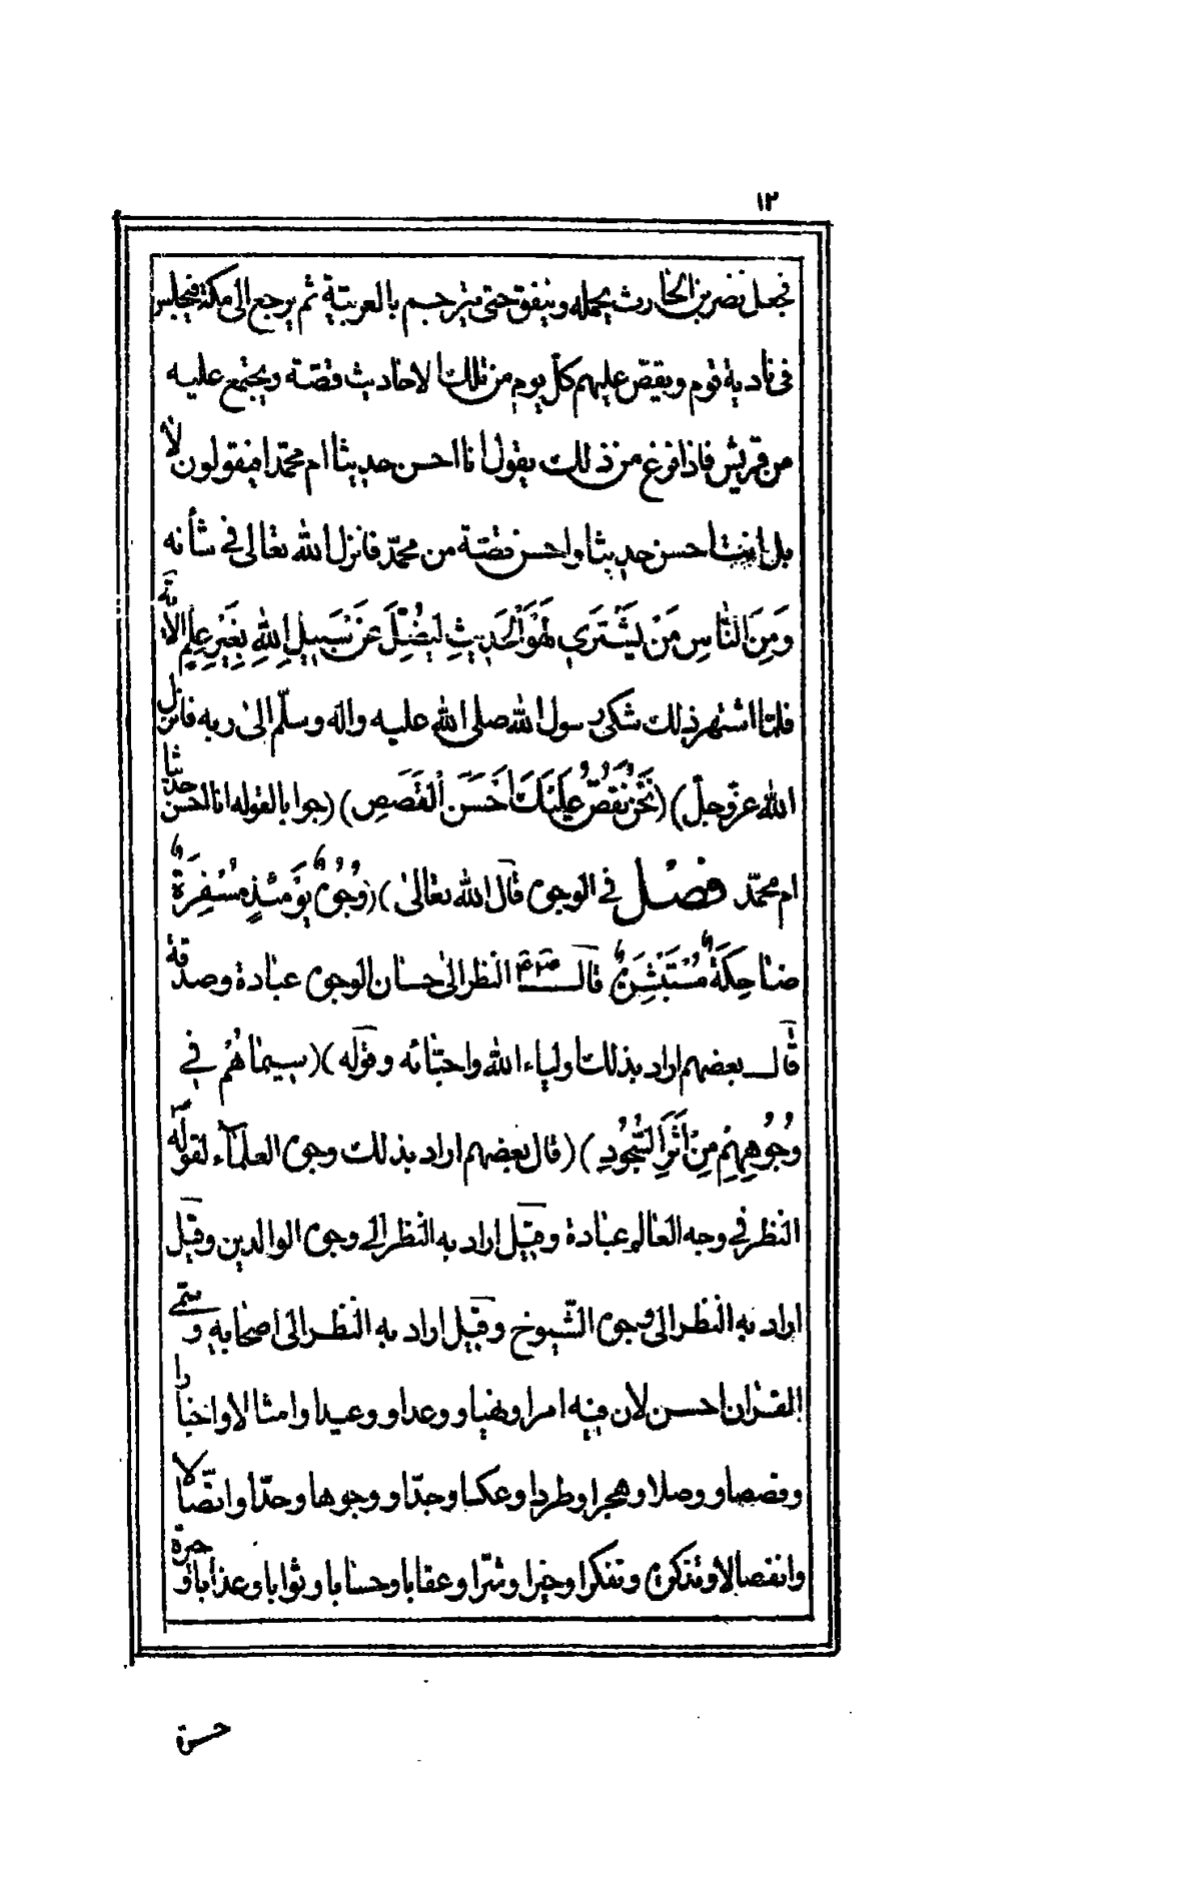 ١٢
فجعل نضر بن الحارث يحمله وينفق حتى يترجم بالعربية ثم يرجع الى مكة فيجلس
فى نادية قوم ويقصّ عليهم كلّ يوم من تلك الاحاديث قصّة ويجتمع عليه
من قريش فاذا فرغ من ذلك يقول انا احسن حديثا ام محمّد فيقولون لا
بل انت احسن حديثا واحسن قصّة من محمّد فانزل الله تعالى فى شأنه
وَمِنَ النَّاسِ مَنْ يَشْتَرِي لَهْوَ الْحَدِيثِ لِيُضِلَّ عَنْ سَبِيلِ اللهِ بِغَيْرِ عِلْمٍ الآية
فلمّا اشتهر ذلك شكى رسول الله صلى الله عليه واله وسلّم الى ربه فانزل
الله عزّ وجلّ) (نَحْنُ نَقُصُّ عَلَيْكَ أَحْسَنَ الْقَصَصِ) (جوابا لقوله انا احسن حديثا
ام محمّد فصل فى الوجوه قال الله تعالى) (وُجُوهٌ يَوْمَئِذٍ مُسْفِرَةٌ
ضَاحِكَةٌ مُسْتَبْشِرَةٌ قال النظر الى حسان الوجوه عبادة وصدقة
قال بعضهم اراد بذلك اولياء الله واحبّائه وقوله) (سِيمَاهُمْ فِي
وُجُوهِهِمْ مِنْ أَثَرِ السُّجُودِ) (قال بعضهم اراد بذلك وجوه العلماء لقوله
النظر فى وجه العالم عبادة وقيل اراد به النظر الى وجوه الوالدين وقيل
اراد به النظر الى وجوه الشّيوخ وقيل اراد به النظر الى اصحابه وسمّى
القران احسن لان فيه امرا ونهيا ووعدا ووعيدا وامثالا واخبارا
وقصصا ووصلا وهجرا وطردا وعكسا وجدّا ووجوها وحدّا واتّصالا
وانفصالا وتذكره وتفكرا وخيرا وشرّا وعقابا وحسابا وثوابا وعذابا و
حسرة